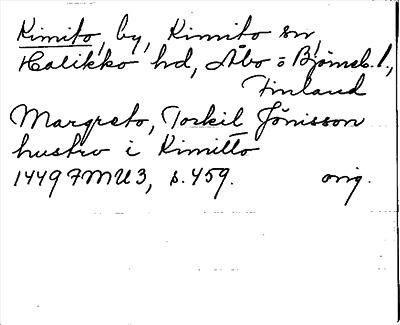 Kimito, by, Kimito sn,
Halikko hd, Åbo o Björneb. l,
Finland
Margreto, Torkil Jönisson
hustro i Kimitto
1449 FMU 3, s. 459. orig.